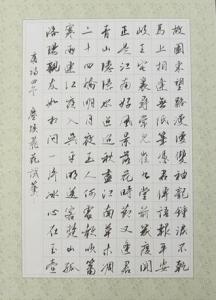 故園東望路漫漫雙袖龍鍾淚不乾
馬上相逢無紙筆憑君傳語報平安
岐王宅裏尋常見崔九堂前幾度聞
正是江南好風景落花時節又逢君
青山隱隱水迢迢秋盡江南草未凋
二十四橋明月夜玉人何處教吹簫
寒雨連江夜入吳平明送客楚山孤
洛陽親友如相問一片冰心在玉壺
唐詩四首